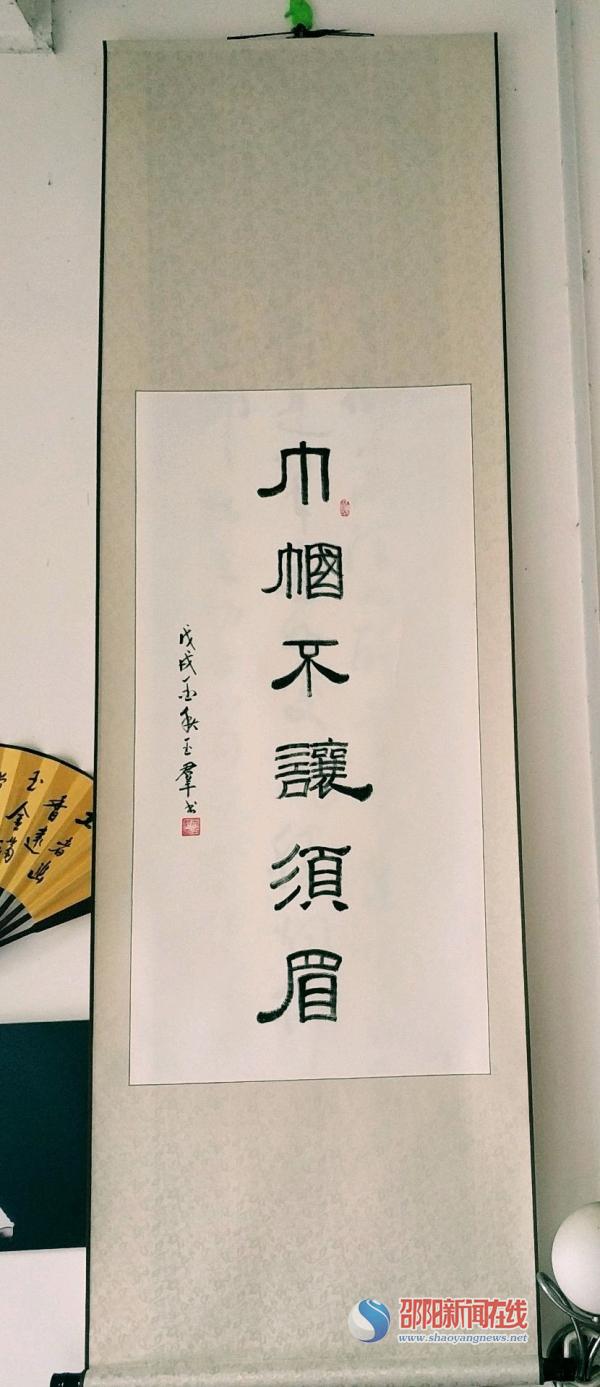 巾帼不讓須眉
戊戌金秋玉羣书
邵阳新闻在线
www.shaoyangnews.net